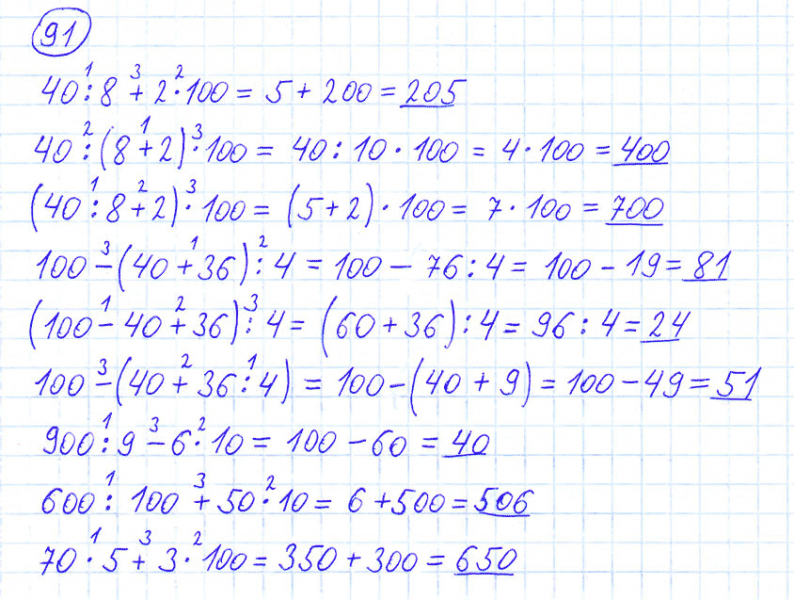 91
40 : 8 + 2 · 100 = 5 + 200 = 205
40 : (8 + 2) · 100 = 40 : 10 · 100 = 4 · 100 = 400
(40 : 8 + 2) · 100 = (5 + 2) · 100 = 7 · 100 = 700
100 - (40 + 36) : 4 = 100 - 76 : 4 = 100 - 19 = 81
(100 - 40 + 36) : 4 = (60 + 36) : 4 = 96 : 4 = 24
100 - (40 + 36 : 4) = 100 - (40 + 9) = 100 - 49 = 51
900 : 9 - 6 · 10 = 100 - 60 = 40
600 : 100 + 50 · 10 = 6 + 500 = 506
70 · 5 + 3 · 100 = 350 + 300 = 650